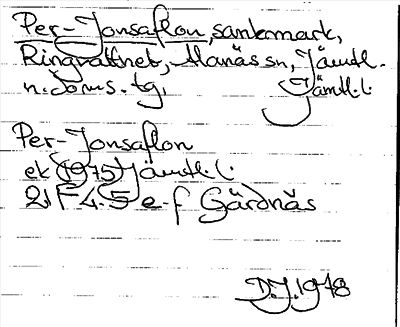 Per-Jonsaflon, sankmark,
Ringvattnet, Alanäs sn, Jämtl.
n. Jorms. tg. Jämtl. l.
Per-Jonsaflon
ek (1975) Jämtl. l.
21F 4.5 e-f Gärdnäs
D.J. 1978